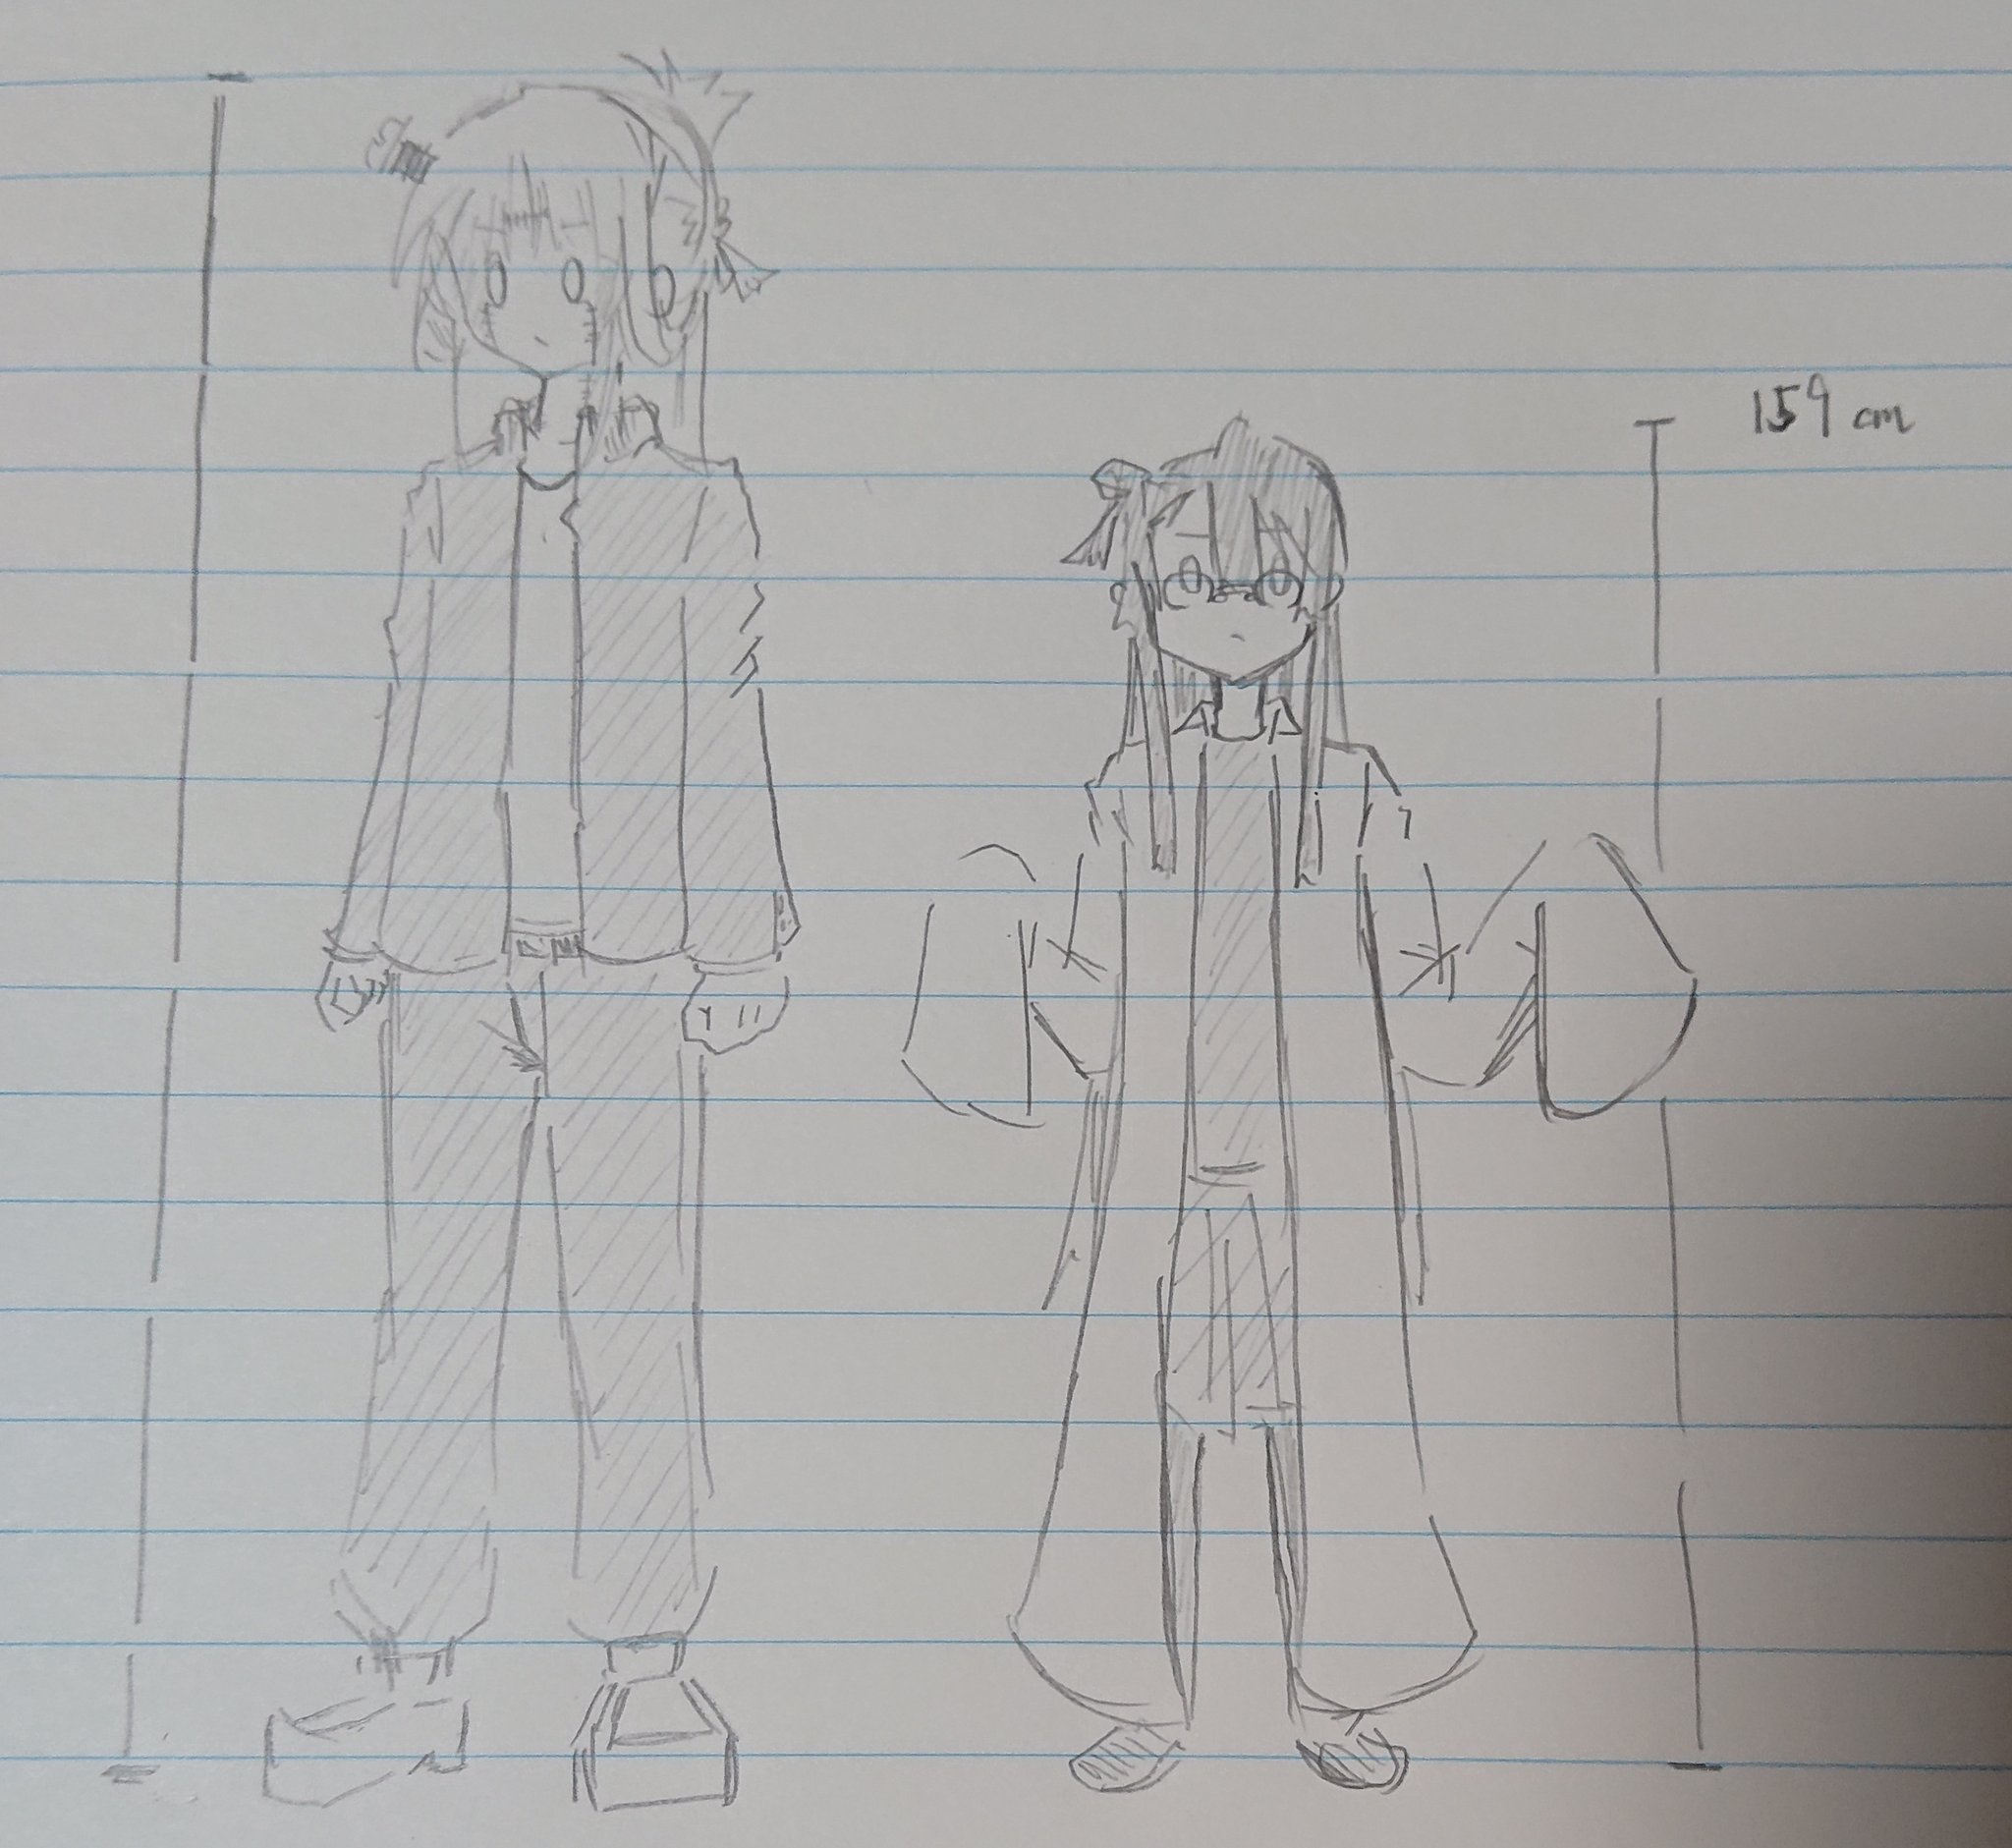 159 cm